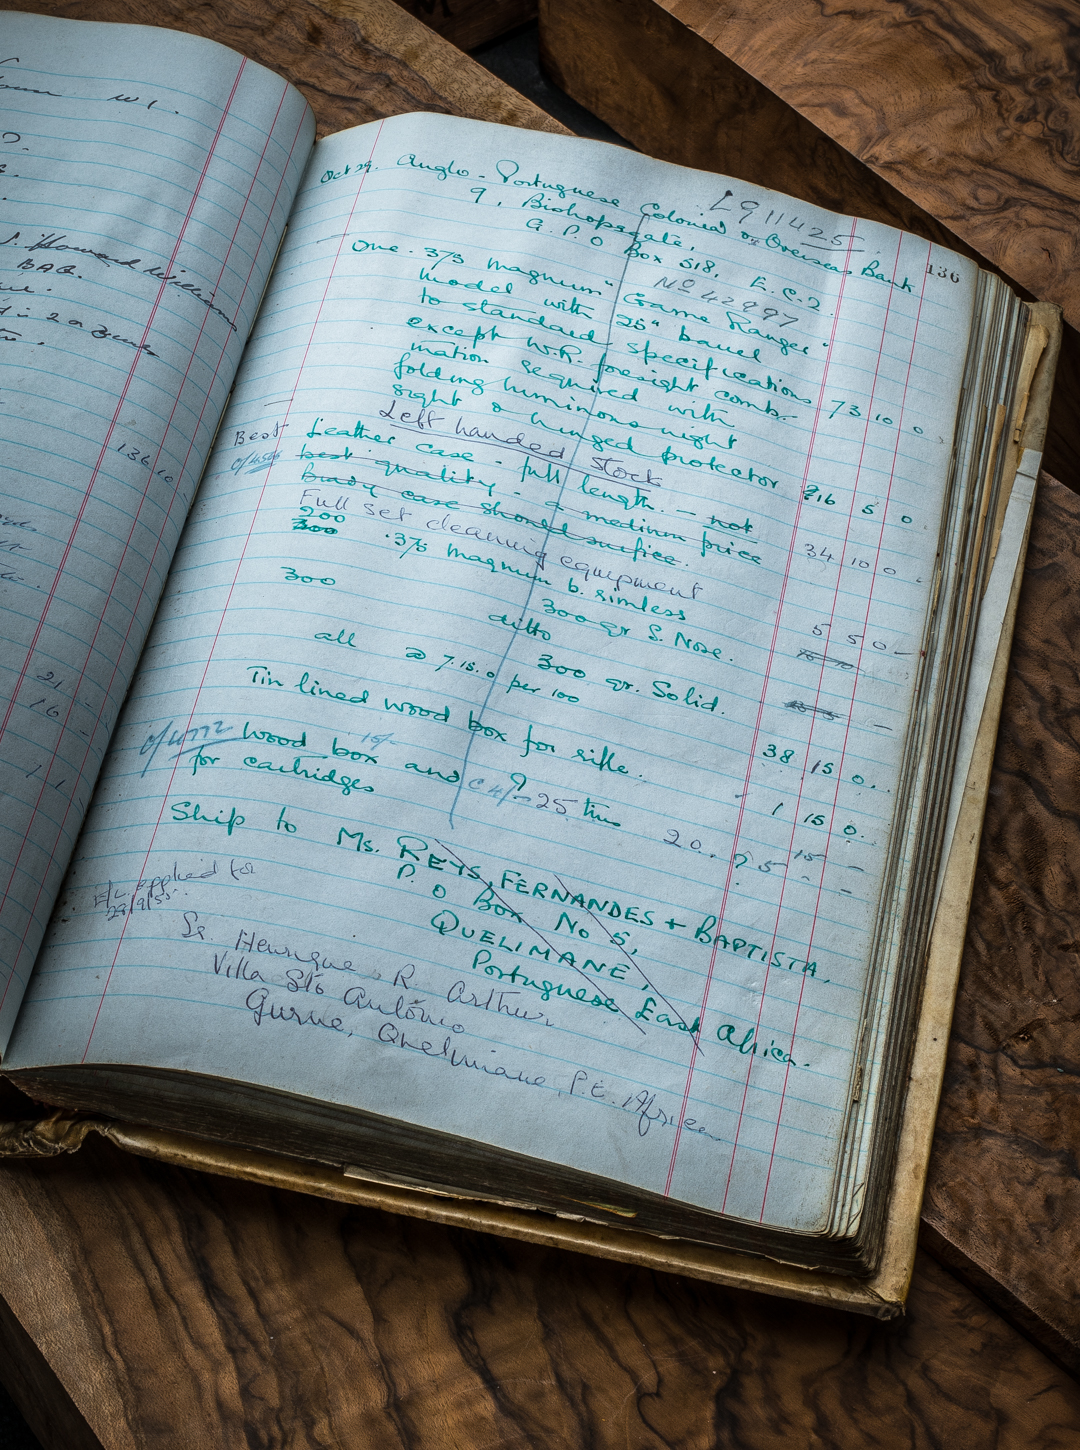 W1.
J. Howard Williams
BAG.
136 10
21
16
1 1
136
1911425
Oct 29. Anglo-Portuguese Colonial & Overseas Bank
9, Bishopsgate,
G.P.O Box 518, E.C.2.
No 42997
One .375 magnum "Game Ranger"
model with 25" barrel
to standard specifications 73 10 0
except W.R. foresight combi-
nation required with
folding luminous night
sight & hinged protector 16 5 0
Left handed stock
Best Leather case - full length. - not
best quality - a medium price
Brady case should suffice. 34 10 0
Full set cleaning equipment 5 5 0
200
300 .375 magnum b. rimless
300 gr S. Nose.
300 ditto
300 gr. Solid.
all @ 7.15.0 per 100 38 15 0
Tin lined wood box for rifle. 1 15 0
15/-
Wood box and 9 25 tins 15 -
for cartridges 20.
Ship to Ms. REYS, FERNANDES + BAPTISTA.
P.O Box No 5,
QUELIMANE,
Portuguese East Africa.
E/L applied for
28/9/55.
Sr. Henrique R. Arthur,
Villa Sto António
Gurue, Quelimane, P.E. Africa